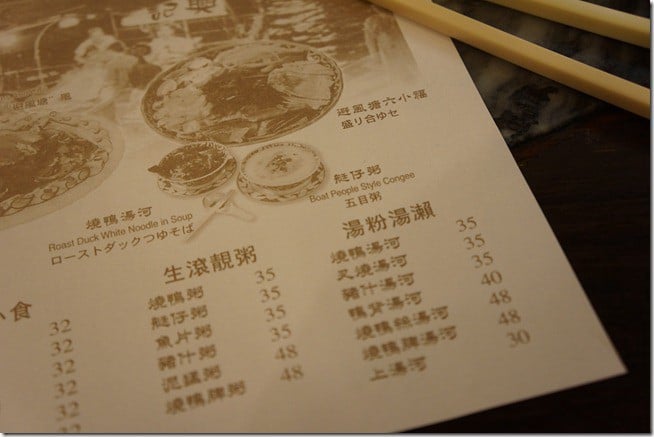 避風塘六小福
盛り合ゆセ
艇仔粥
Boat People Style Congee
五目粥
燒鴨湯河
Roast Duck White Noodle in Soup
ローストダックつゆそば
小食
32
32
32
32
32
生滾靚粥
燒鴨粥 35
艇仔粥 35
魚片粥 35
豬什粥 35
泥鯭粥 48
燒鴨脾粥 48
湯粉湯瀨
燒鴨湯河 35
叉燒湯河 35
豬什湯河 35
鴨背湯河 40
燒鴨翅湯河 48
燒鴨脾湯河 48
上湯河 30